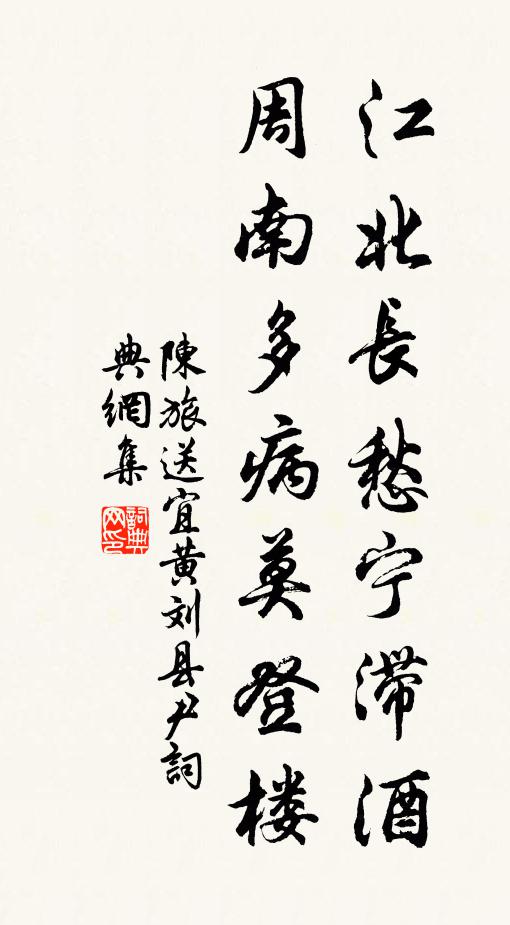 江北長愁宁滞酒
周南多病莫登楼
陳旅送宜黄刘县尹詞
典網集
詞典网印